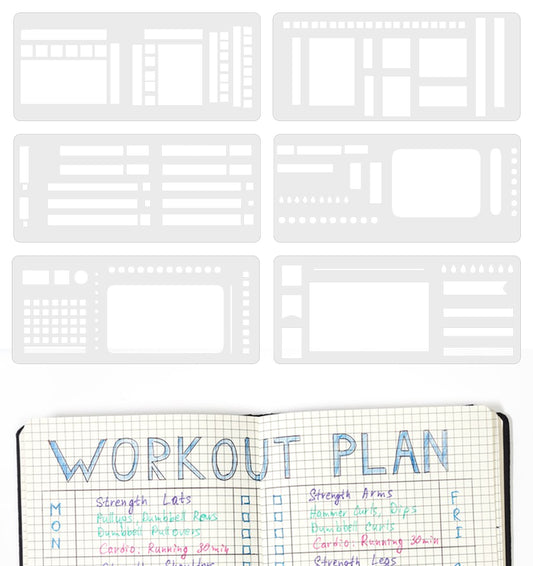 WORKOUT PLAN
MON
Strength Lats
Pullups, Dumbbell Rows
Dumbbell Pullovers
Cardio: Running 30min
Strength Arms
Hammer Curls, Dips
Dumbbell Curls
Cardio: Running 30min
FRI
Strength Legs